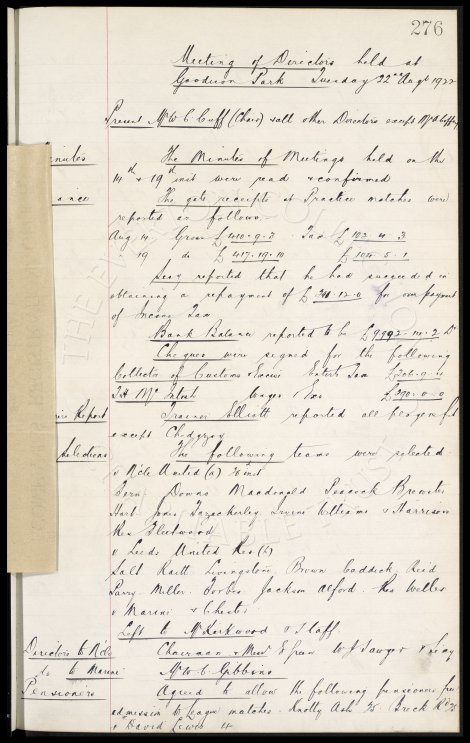 276
Meeting of Directors held at
Goodison Park Tuesday 22nd Augt 1922
Present Mr W. C. Cuff (Chair) & all other Directors except Mr A Coffey
inutes The Minutes of Meetings held on the
14th & 19th inst were read & confirmed
ance The gate receipts at Practice matches were
reported as follows:-
Aug 14 Gross £410.9.3 Tax £103.4.3
" 19 do £417.19.10 £104.5.1
Secy reported that he had succeeded in
obtaining a repayment of for overpayment
of Income Tax
Bank Balance reported to be Dr
Cheques were signed for the following
Collector of Customs & Excise Entert Tax
Wages £390.0.0
Report Trainer Elliott reported all players fit
except Chedgzoy
Selections The following teams were selected
v N'cle United (a) inst
Fern Downs Macdonald Peacock Brewster
Hart Jones Fazackerley Irvine Williams & Harrison
Res Fleetwood
v Leeds United Res (h)
Salt Raitt Livingstone Brown Caddick Reid
Parry Miller Forbes Jackson Alford Res
v Marine & Chester
Left to Mr Kirkwood & Staff
Directors to N'cle Chairman & Messrs Green W J Sawyer & Secy
do to Marine Mr W. C. Gibbins
Pensioners Agreed to allow the following pensioners free
admission to League matches. Knotty Ash
& David Lewis 4